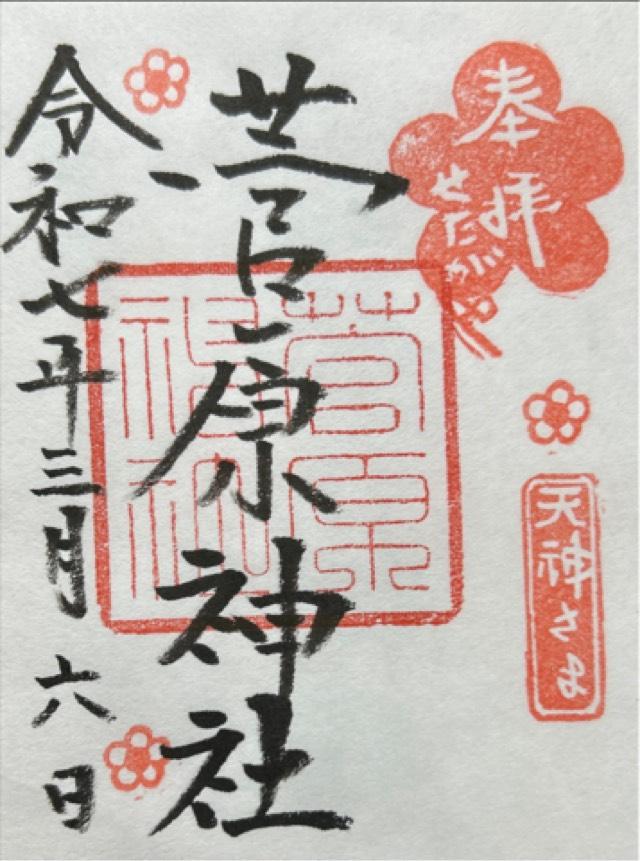 奉拝
せたがや
天神さま
菅原神社
菅原
神社
令和七年三月六日